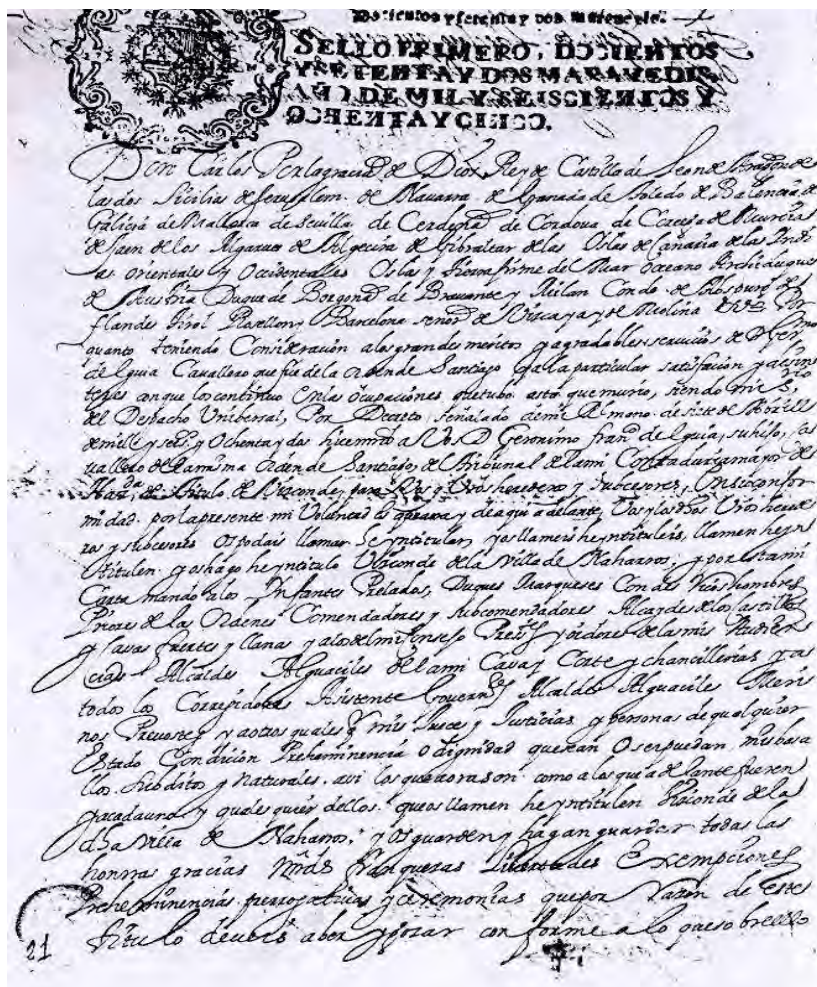 Docientos y setenta y dos maravedis.
SELLO PRIMERO, DOCIENTOS
Y SETENTA Y DOS MARAVEDIS,
AÑO DE MIL Y SEISCIENTOS Y
OCHENTA Y CINCO.
Don Carlos Por la gracia de Dios Rey de Castilla de Leon de Aragon de
las dos Sicilias de Jerusalem. de Navarra. de Granada de Toledo de Balencia, de
Galicia de Mallorca de Sevilla. de Cerdeña de Cordova de Corcega de Murcia
de Jaen de los Algarves de Algecira de Gibraltar de las Islas de Canaria de las Indi
as orientales y Occidentales Islas y tierra firme del Mar Oceano Archiduque
de Austria Duque de Borgoña de Bravante y Milan Conde de
flandes tirol Rosellon y Barcelona señor de Vizcaya y de Molina Por
quanto teniendo Consideración a los grandes meritos y agradables servicios de
de Eguia Cavallero que fue de la orden de Santiago y a la particular satisfacion y
teres con que los continuo en las ocupaciones que tubo asta que murio, siendo mi
del Despacho Unibersal, Por Decreto señalado de mi Rl mano. de siete de
de mill y seis y Ochenta y dos hice mrd a Vos D Geronimo franco de Eguia, su hijo, ca
vallero de la misma Orden de Santiago, del tribunal de la mi Contaduria mayor de
Hazda, de titulo de Vizconde, para Vos y Vros herederos y subcesores, en su confor
midad. por la presente mi Voluntad es que aora y de aqui adelante, Vos y los dhos Vros herede
ros y subcesores os podais llamar he yntitular, y os llameis he yntituleis, llamen he yn
titulen. y os hago he yntitulo Vizconde de la villa de Naharros, y por esta mi
Carta mando a los Ynfantes Prelados, Duques Marqueses Condes Ricos hombres
Priores de las Ordenes Comendadores y subcomendadores Alcaydes de los castillos
y casas fuertes y llanas y a los del mi Consejo Presidtes y oidores de las mis Audien
cias Alcaldes Alguaciles de la mi Casa y Corte y chancillerias y a
todos los Corregidores Asistente Governres Alcaldes Alguaciles Meri
nos Prevostes y a otros qualesqr mis Jueces y Justicias y personas de qualquier
Estado Condición Preheminencia o dignidad que sean o ser puedan mis basa
llos. subditos y naturales. asi los que aora son como a los que adelante fueren
y a cada uno y qualesquier dellos. que os llamen he yntitulen Vizconde de la
dha villa de Naharros, y os guarden y hagan guardar todas las
honrras gracias Mrds franquezas Libertades Exempciones
Preheminencias prerrogativas y ceremonias que por Razon de este
titulo deveis aber y gozar conforme a lo que sobre ello
21